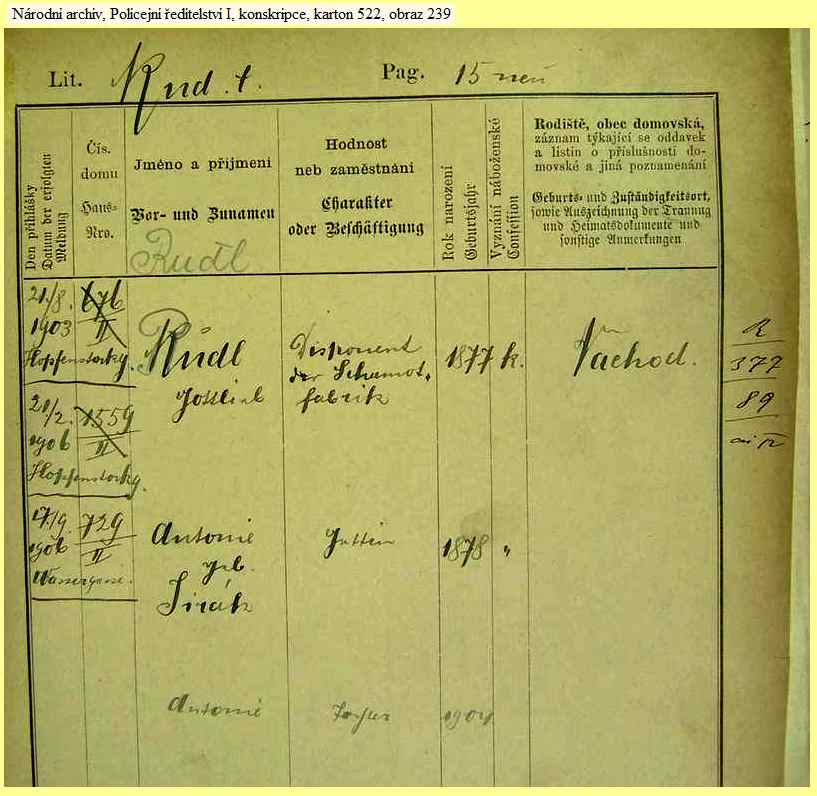 Národní archiv, Policejní ředitelství I, konskripce, karton 522, obraz 239
Lit. Rud. t. Pag. 15
Den přihlášky
Datum der erfolgten
Meldung
Čís.
domu
Haus-
Nro.
Jméno a příjmení
Vor- und Zunamen
Rudl
Hodnost
neb zaměstnání
Charakter
oder Beschäftigung
Rok narození
Geburtsjahr
Vyznání náboženské
Confession
Rodiště, obec domovská,
záznam týkající se oddavek
a listin o příslušnosti do-
movské a jiná poznamenání
Geburts- und Zuständigkeitsort,
sowie Auszeichnung der Trauung
und Heimatsdokumente und
sonstige Anmerkungen
21./8. 676
1903 II
Hopfenstockg.
Rudl
Gottlieb
Disponent
der Schamot.
fabrik
1877 k.
Náchod.
R
377
89
20/2. 1559
1906 II
Hopfenstockg.
17/9. 729
1906 II
Wassergasse.
Antonie
geb.
Jirák
Gattin
1878 "
Antonie
Tochter
1904